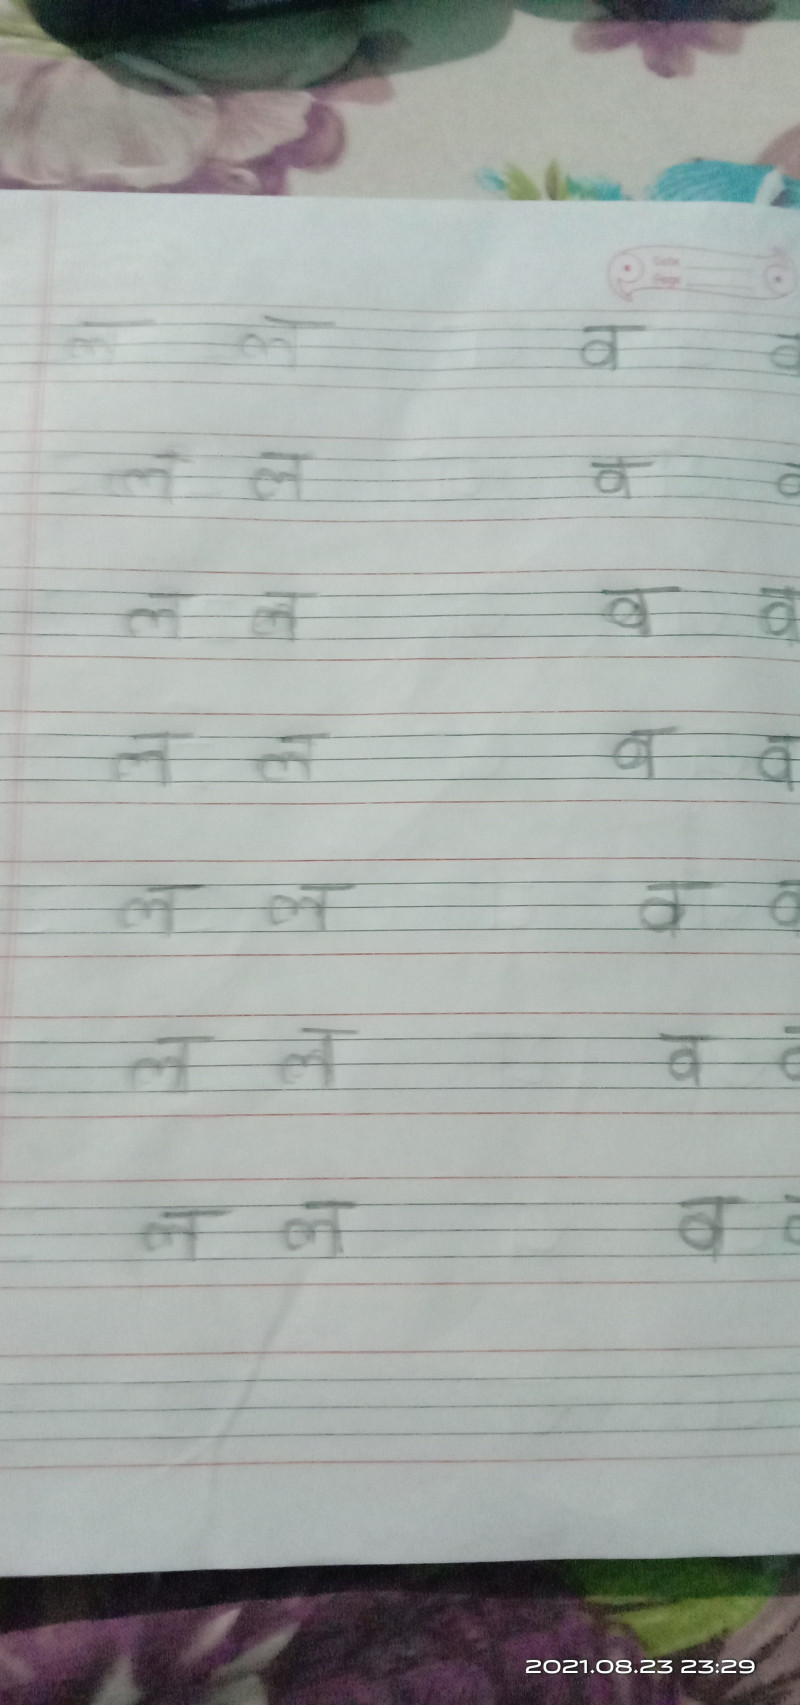 Date
Page
ल ल व व
ल ल व व
ल ल व व
ल ल व व
ल ल व व
ल ल व व
ल ल व व
2021.08.23 23:29